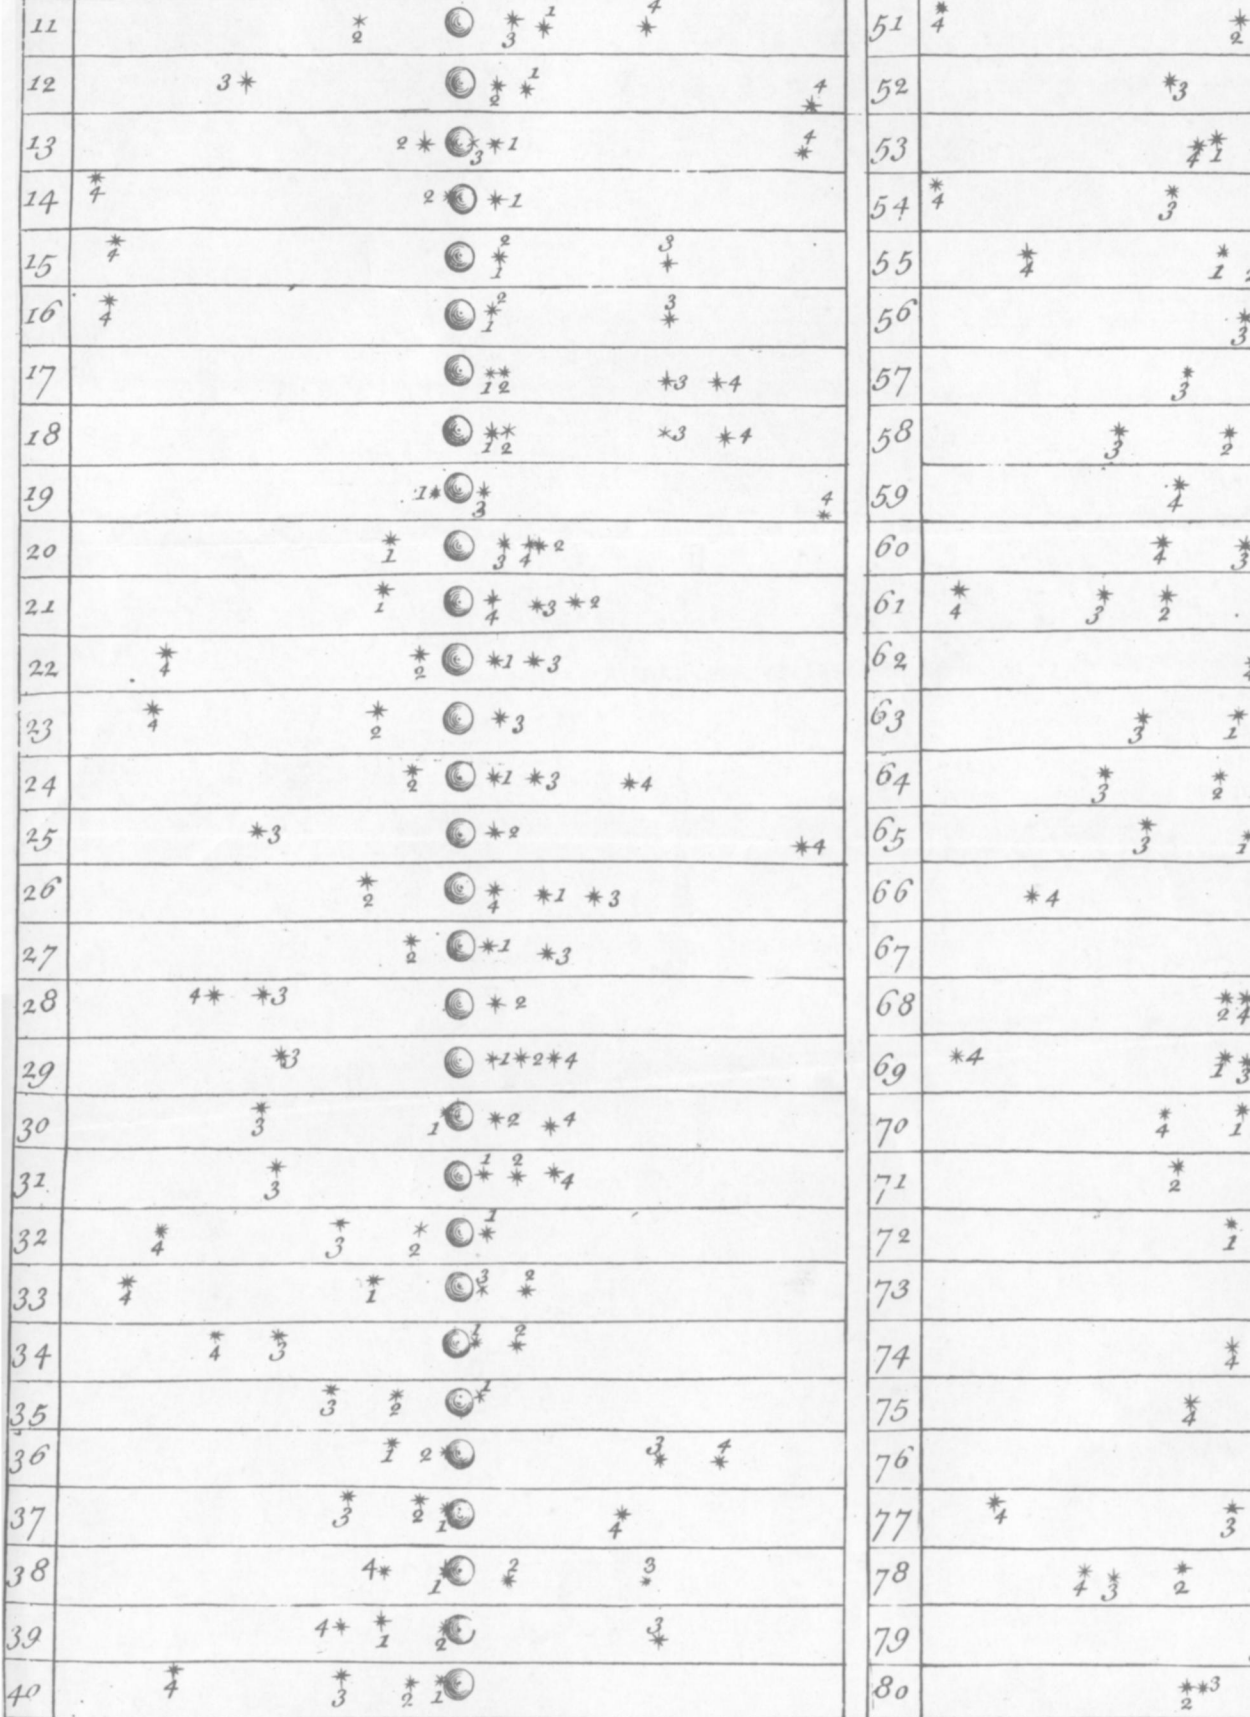 11 2 3 1 4
12 3 2 1 4
13 2 3 1 4
14 4 2 1
15 4 2 1 3
16 4 2 1 3
17 1 2 3 4
18 1 2 3 4
19 1 3 4
20 1 3 4 2
21 1 4 3 2
22 4 2 1 3
23 4 2 3
24 2 1 3 4
25 3 2 4
26 2 4 1 3
27 2 1 3
28 4 3 2
29 3 1 2 4
30 3 1 2 4
31 3 1 2 4
32 4 3 2 1
33 4 1 3 2
34 4 3 1 2
35 3 2 1
36 1 2 3 4
37 3 2 1 4
38 4 1 2 3
39 4 1 2 3
40 4 3 2 1
51 4 2
52 3
53 4 1
54 4 3
55 4 1
56 3
57 3
58 3 2
59 4
60 4 3
61 4 3 2
62
63 3 1
64 3 2
65 3 1
66 4
67
68 2 4
69 4 1 3
70 4 1
71 2
72 1
73
74 4
75 4
76
77 4 3
78 4 3 2
79
80 2 3